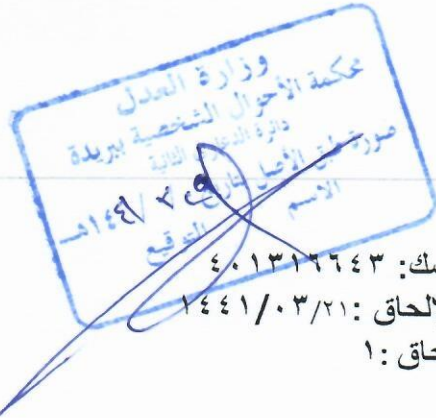 وزارة العدل
محكمة الأحوال الشخصية ببريدة
دائرة الدعاوى الثانية
صورة طبق الأصل بتاريخ / / ١٤٤١هـ
الاسم
التوقيع
سك: ٤٠١٣١٦٦٤٣
لحاق :١٤٤١/٠٣/٢١
حاق :١